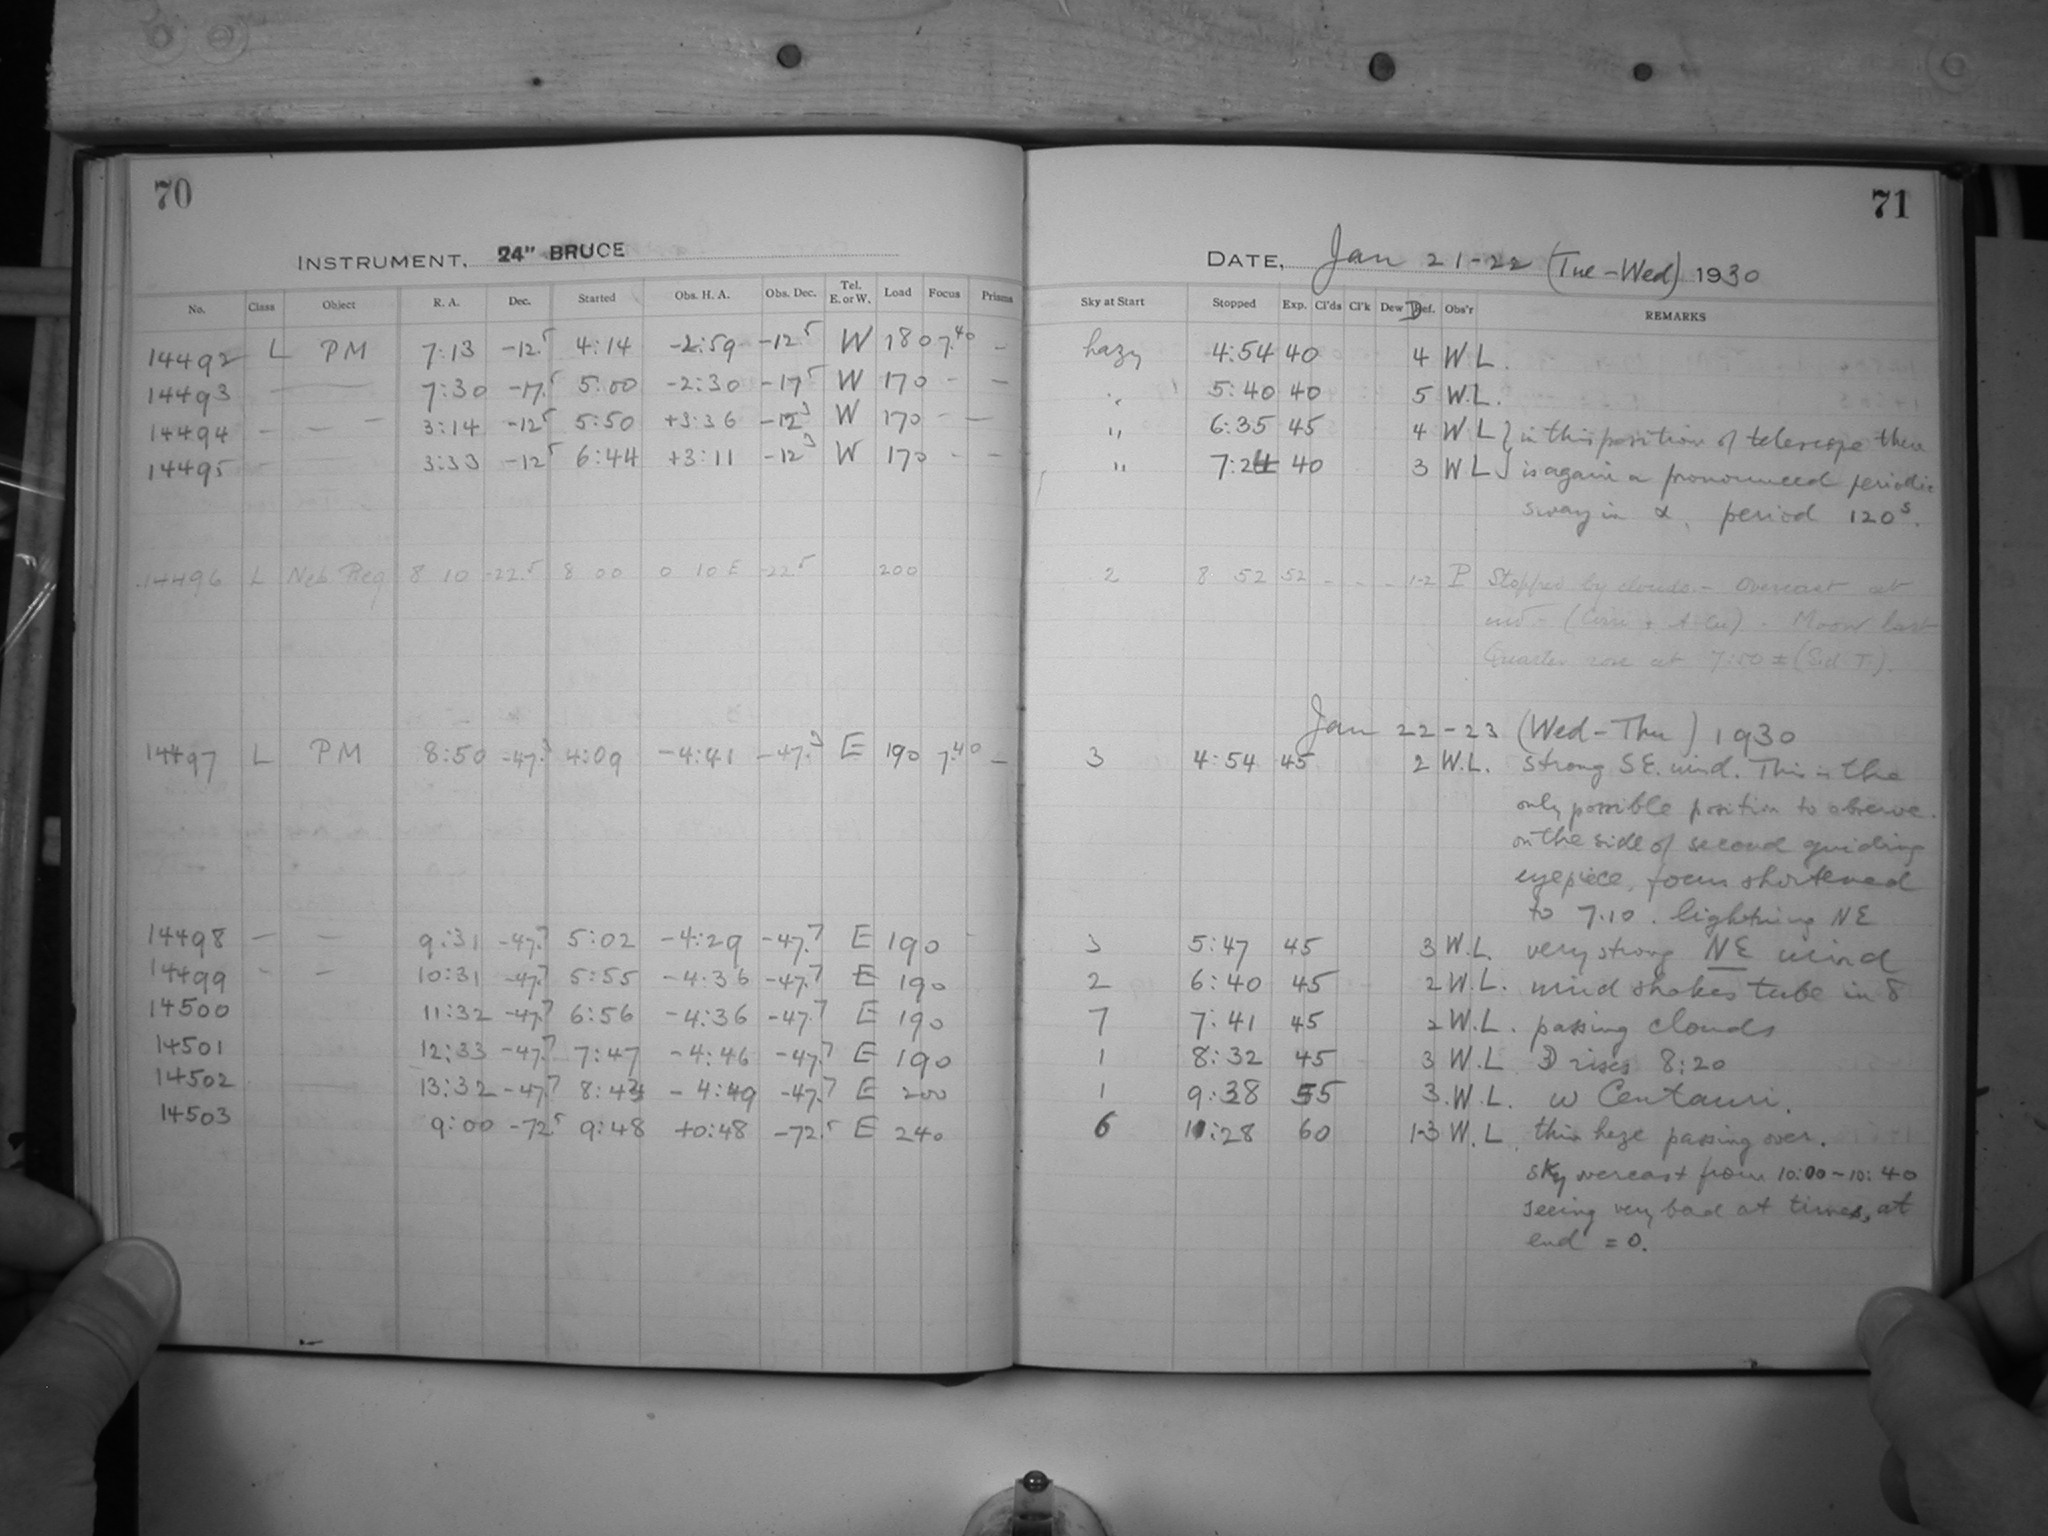 70
INSTRUMENT, 24" BRUCE
No. Class Object R. A. Dec. Started Obs. H. A. Obs. Dec. Tel. E. or W. Load Focus Prisms
14492 L PM 7:13 -12.5 4:14 -2:59 -12.5 W 180 7.40 -
14493 — — 7:30 -17.5 5:00 -2:30 -17.5 W 170 - -
14494 - - - 3:14 -12.5 5:50 +3:36 -12.3 W 170 - -
14495 - - 3:33 -12.5 6:44 +3:11 -12.3 W 170 - -
14496 L Neb Reg 8 10 -22.5 8 00 0 10 E -22.5 200
14497 L PM 8:50 -47.3 4:09 -4:41 -47.3 E 190 7.40 -
14498 - - 9:31 -47.7 5:02 -4:29 -47.7 E 190 -
14499 - - 10:31 -47.7 5:55 -4:36 -47.7 E 190
14500 11:32 -47.7 6:56 -4:36 -47.7 E 190
14501 12:33 -47.7 7:47 -4:46 -47.7 E 190
14502 13:32 -47.7 8:43 -4:49 -47.7 E 200
14503 9:00 -72.5 9:48 +0:48 -72.5 E 240
71
DATE, Jan 21-22 (Tue-Wed) 1930
Sky at Start Stopped Exp. Cl'ds Cl'k Dew Def. Obs'r REMARKS
hazy 4:54 40 4 W L.
" 5:40 40 5 W.L.
" 6:35 45 4 W L } in this position of telescope there
" 7:24 40 3 W L } is again a pronounced periodic
sway in α, period 120s.
2 8 52 52 - - - 1-2 P Stopped by clouds. - Overcast at
- Moon last
Quarter rose at 7:50 ± (Sid T.).
Jan 22-23 (Wed-Thu) 1930
3 4:54 45 2 W.L. strong SE. wind. This is the
only possible position to observe
on the side of second guiding
eyepiece, focus shortened
to 7.10. lightning NE
3 5:47 45 3 W.L. very strong NE wind
2 6:40 45 2 W.L. wind shakes tube in δ
7 7:41 45 2 W.L. passing clouds
1 8:32 45 3 W.L ☽ rises 8:20
1 9:38 55 3.W.L. ω Centauri.
6 11:28 60 1-3 W.L. thin haze passing over.
sky overcast from 10:00-10:40
seeing very bad at times, at
end = 0.